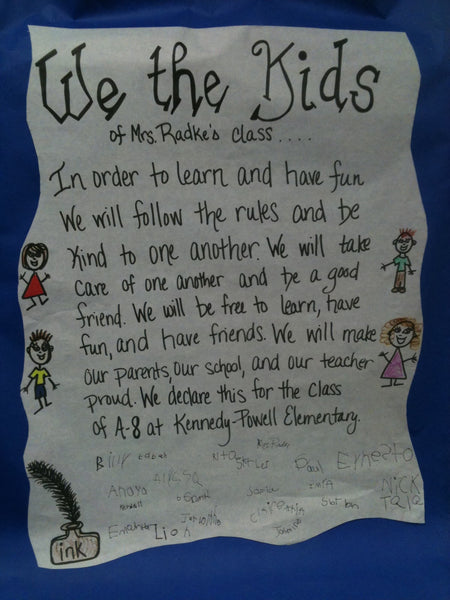 We the Kids
of Mrs. Radke's class....
In order to learn and have fun
We will follow the rules and be
kind to one another. We will take
care of one another and be a good
friend. We will be free to learn, have
fun, and have friends. We will make
our parents, our school, and our teacher
proud. We declare this for the class
of A-8 at Kennedy-Powell Elementary.
Mrs. Radke
Billy
Ernesto
Alyssa
Saul
Anaya
Sofia
NICK
Lion
ink